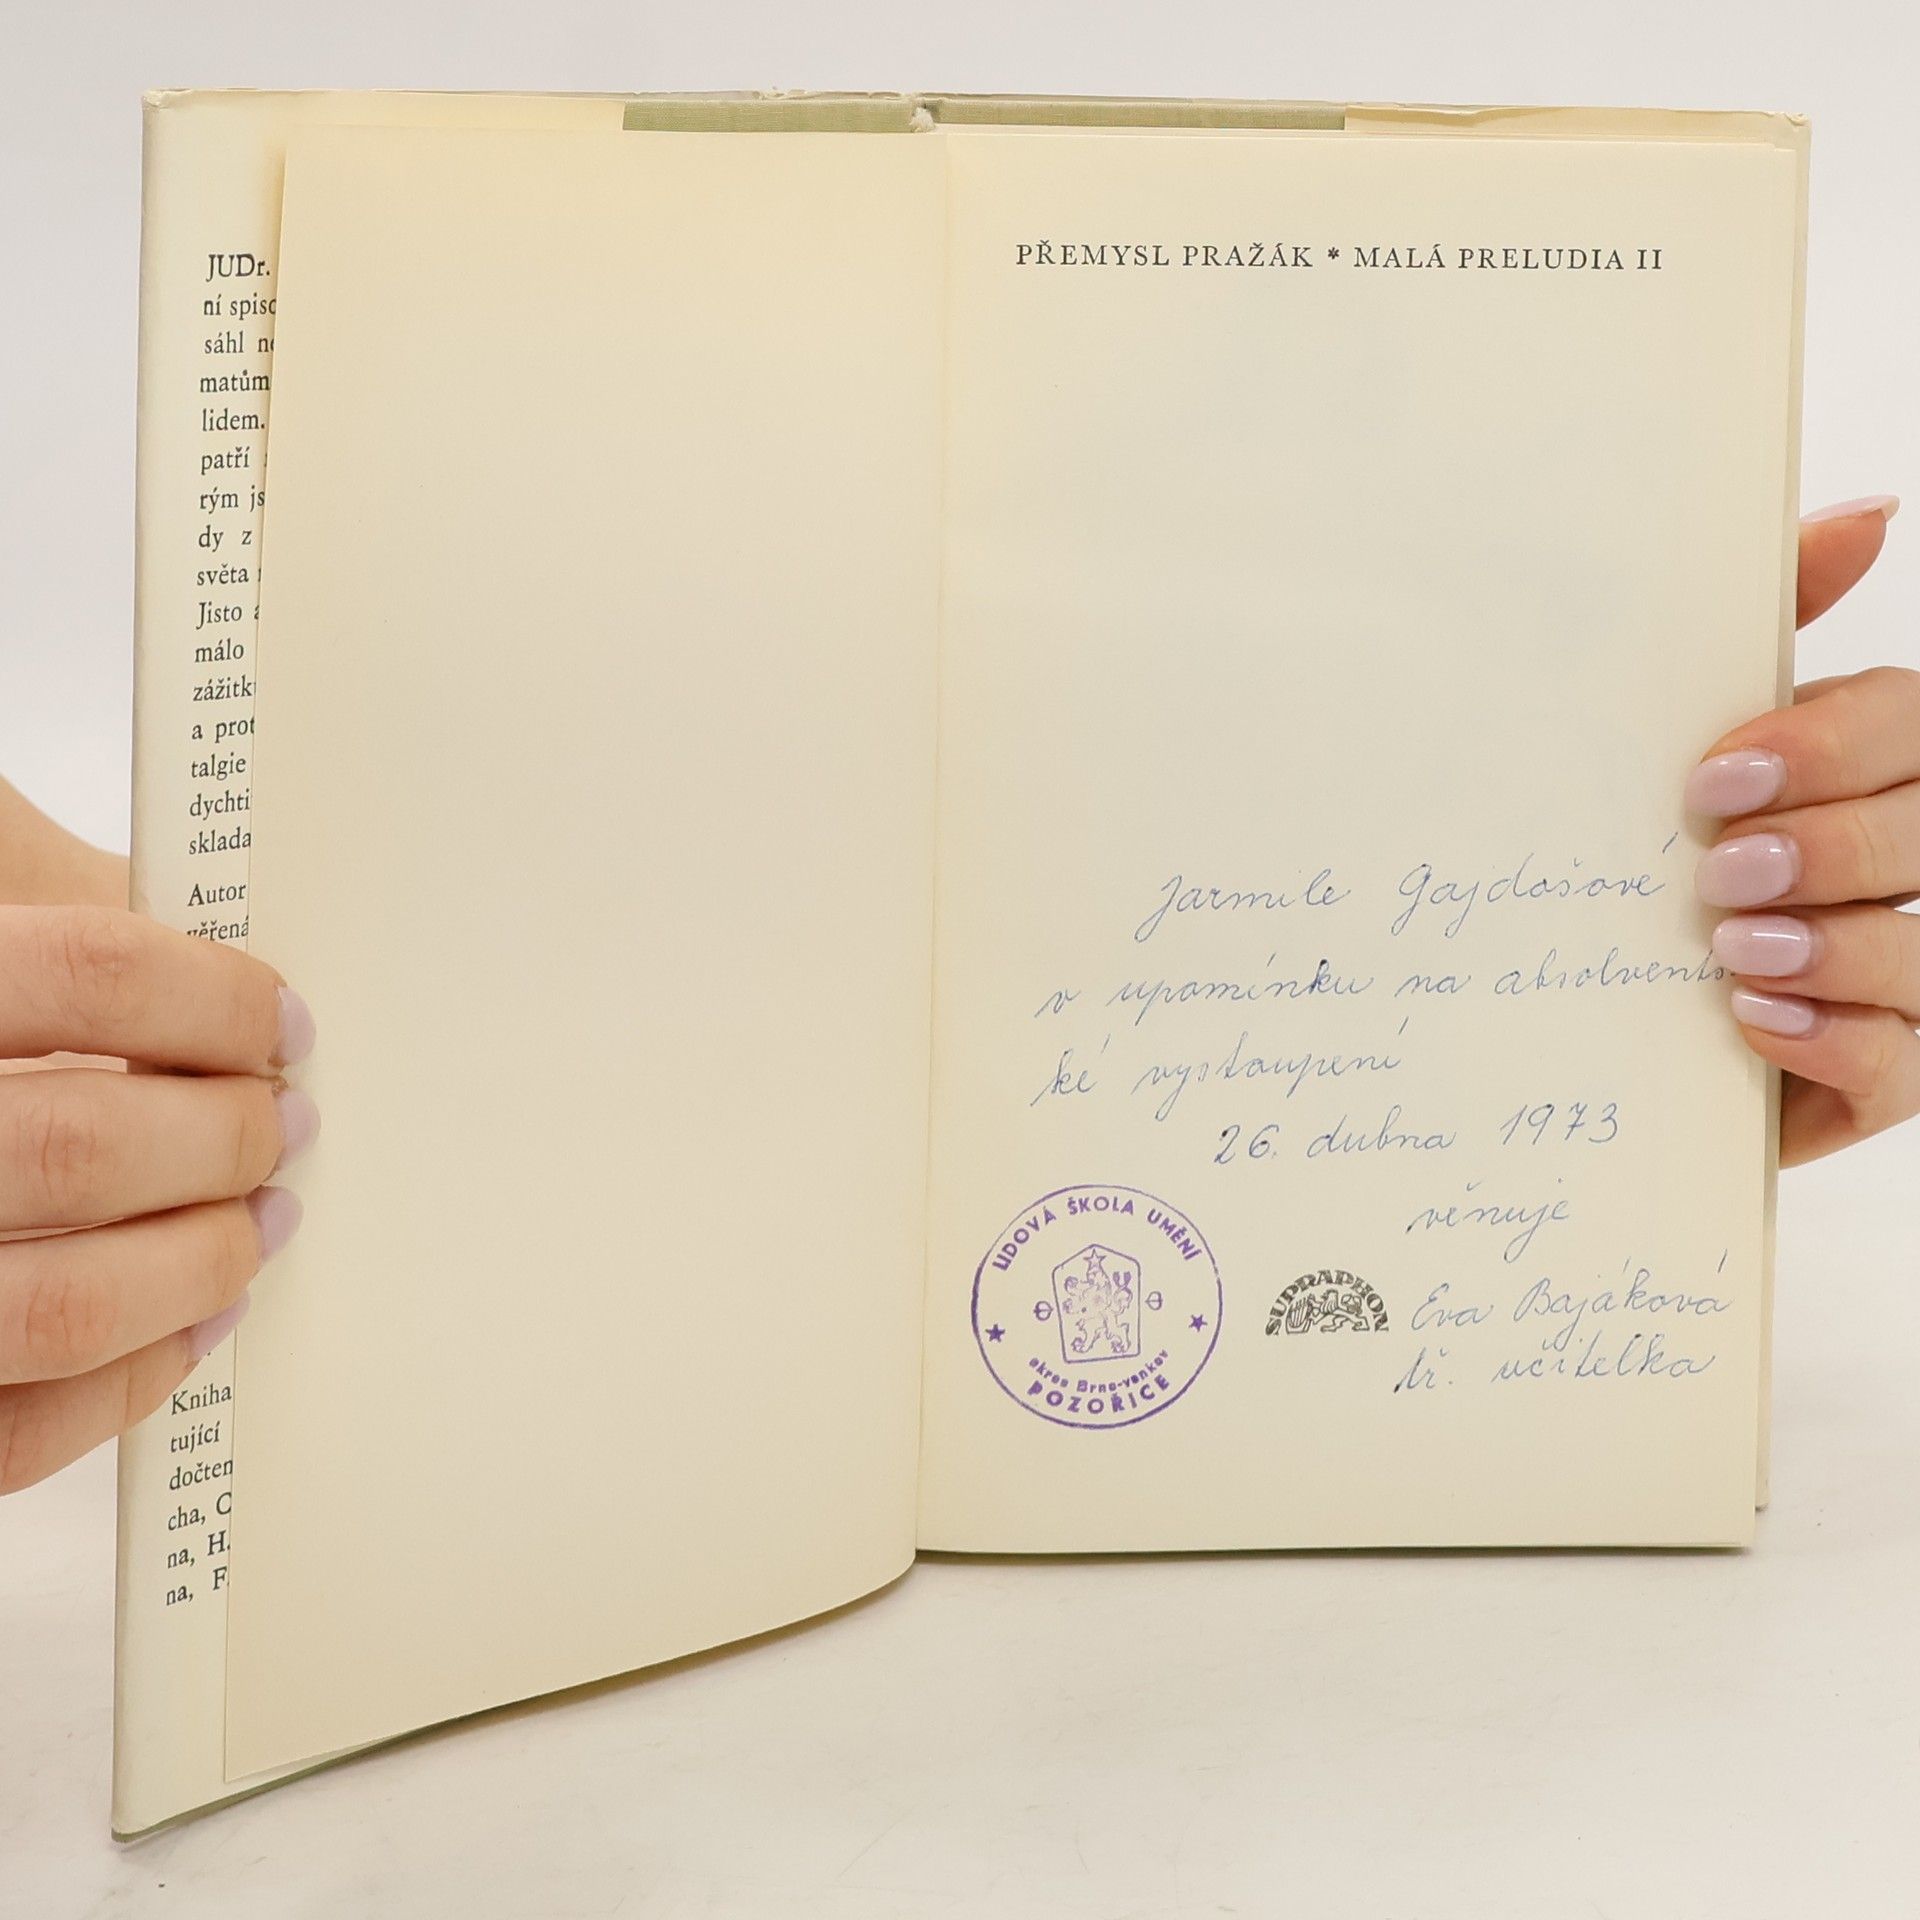 JUDr.
ní
sáhl
matům
lidem.
patří
rým
dy z
světa
Jisto
málo
a
talgie
Autor
Kniha
tující
cha,
na, H.
na, F.
PŘEMYSL PRAŽÁK * MALÁ PRELUDIA II
Jarmile Gajdošové
v upomínku na absolvents-
ké vystoupení
26. dubna 1973
věnuje
Eva Bajáková
tř. učitelka
LIDOVÁ ŠKOLA UMĚNÍ
okres Brno-venkov
POZOŘICE
SUPRAPHON